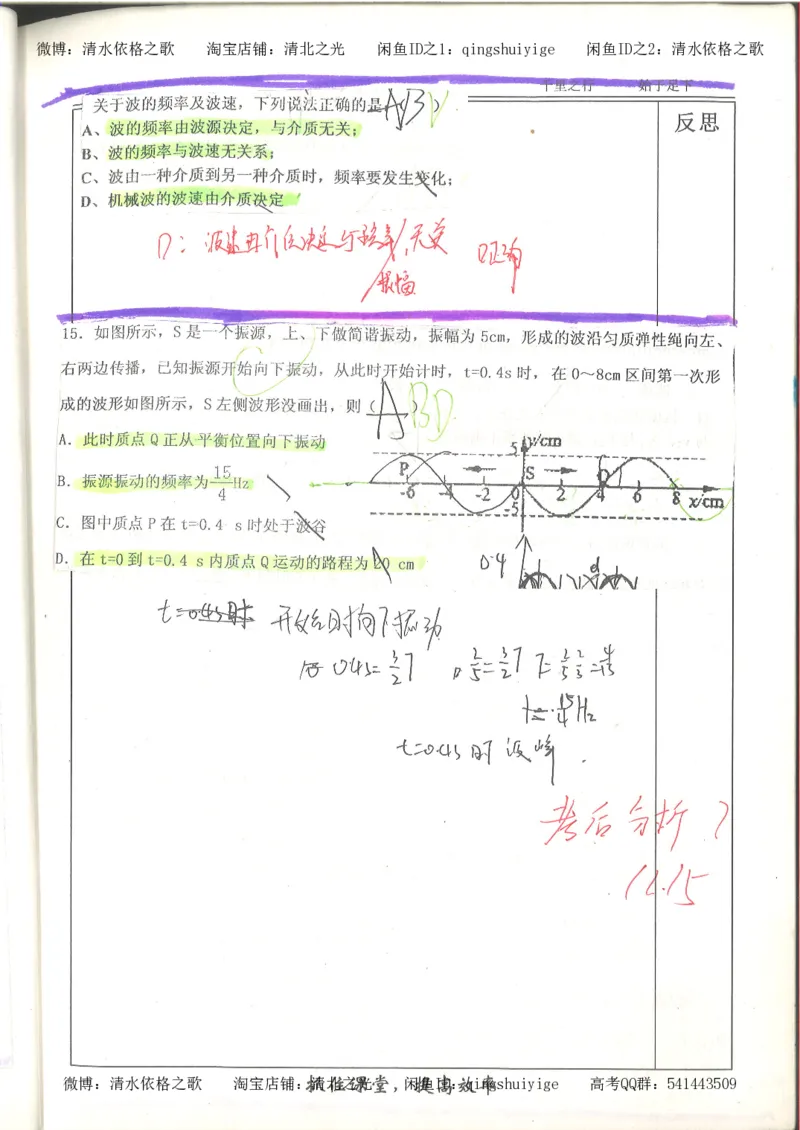 微博：清水依格之歌 淘宝店铺：清北之光 闲鱼ID之1：qingshuiyige 闲鱼ID之2：清水依格之歌
千里之行 始于足下
关于波的频率及波速，下列说法正确的是（ABD）
反思
A、波的频率由波源决定，与介质无关；
B、波的频率与波速无关系；
C、波由一种介质到另一种介质时，频率要发生变化；
D、机械波的波速由介质决定
D：波速由介质决定与频率/无关 D正确
振幅
15．如图所示，S是一个振源，上、下做简谐振动，振幅为5cm，形成的波沿匀质弹性绳向左、
右两边传播，已知振源开始向下振动，从此时开始计时，t=0.4s时，在0～8cm区间第一次形
成的波形如图所示，S左侧波形没画出，则（A）ABD
A．此时质点Q正从平衡位置向下振动
B．振源振动的频率为15/4Hz
C．图中质点P在t=0.4 s时处于波谷
D．在t=0到t=0.4 s内质点Q运动的路程为20 cm
5 y/cm
P S Q
-6 -4 -2 0 2 4 6 8 x/cm
-5
0.4
t=0.4s时 开始时向下振动
0.4s=3/2T 2/5=3/2T T=2/5 2/3=4/15
f=15/4Hz
t=0.4s时 波峰.
考后分析？
11.15
抓住课堂，提高效率
微博：清水依格之歌 淘宝店铺：清北之光 闲鱼ID：qingshuiyige 高考QQ群：541443509